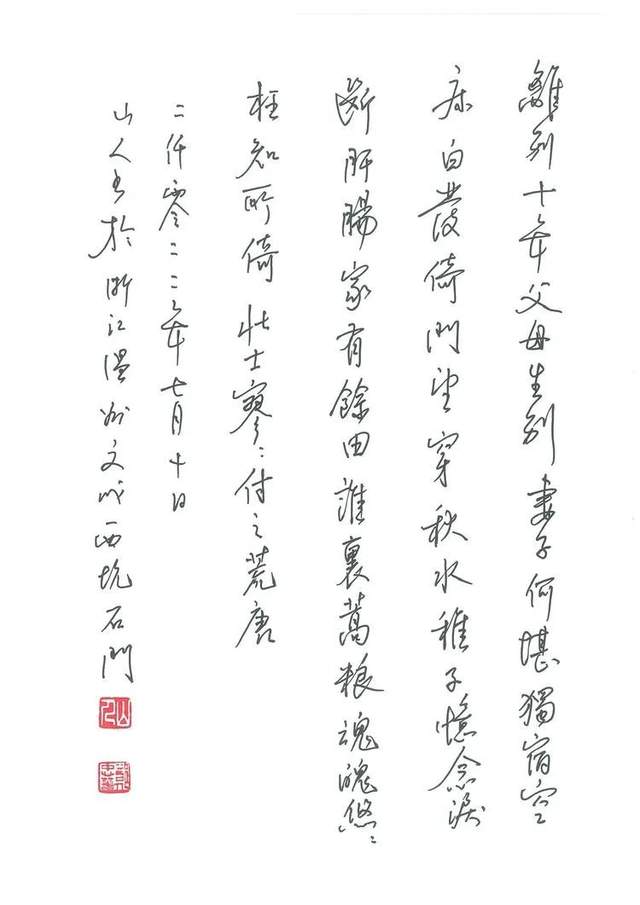 離别十年父母生别妻子何堪獨宿空
床白發倚門望穿秋水稚子憶念淚
斷肝腸家有餘田誰裏蒿粮魂魄悠々
枉知所倚壯士寥々付之荒唐
二仟零二二年七月十日
山人书於浙江温州文成西坑石門
山人